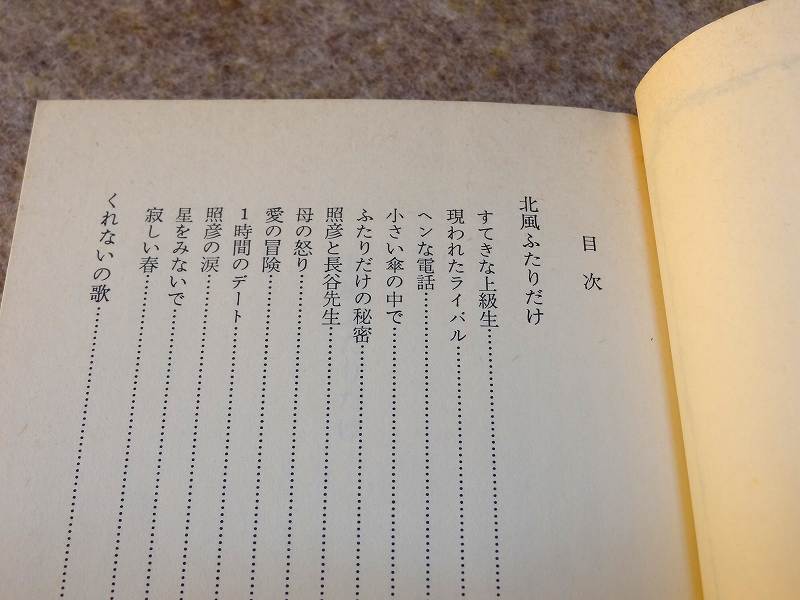 目次
北風ふたりだけ
すてきな上級生
現われたライバル
ヘンな電話
小さい傘の中で
ふたりだけの秘密
照彦と長谷先生
母の怒り
愛の冒険
1時間のデート
照彦の涙
星をみないで
寂しい春
くれないの歌